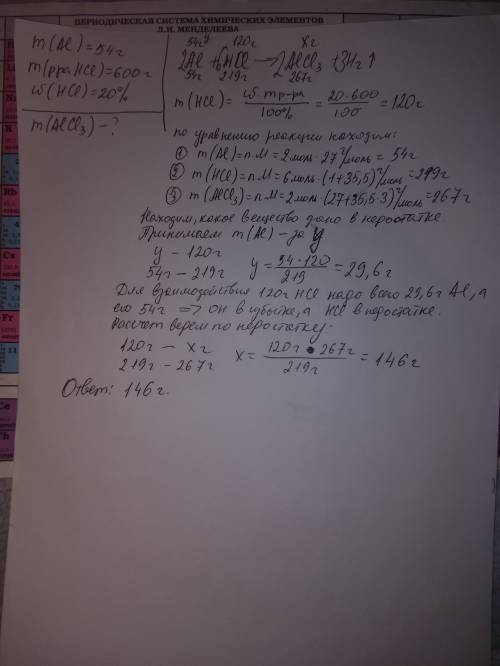 ПЕРИОДИЧЕСКАЯ СИСТЕМА ХИМИЧЕСКИХ ЭЛЕМЕНТОВ
Д.И. МЕНДЕЛЕЕВА
m(Al)=54г
m(р-ра HCl)=600г
ω(HCl)=20%
m(AlCl₃)-?
54г 120г xг
2Al+6HCl→2AlCl₃+3H₂↑
54г 219г 267г
m(HCl)= ω·mр-ра / 100% = 20·600 / 100 = 120г
по уравнению реакции находим:
① m(Al)=n·M=2моль·27г/моль=54г
② m(HCl)=n·M=6моль·(1+35,5)г/моль=219г
③ m(AlCl₃)=n·M=2моль·(27+35,5·3)г/моль=267г
Находим, какое вещество дано в недостатке.
Принимаем m(Al)-за y
y-120г
54г-219г y= 54·120 / 219 =29,6г
Для взаимодействия 120г HCl надо всего 29,6г Al, а
его 54г => он в избытке, а HCl в недостатке.
Рассчет ведем по недостатку:
120г-xг
219г-267г x= 120г·267г / 219г =146г
Ответ: 146г.
Rb
Cs
Fr
Ce
Th